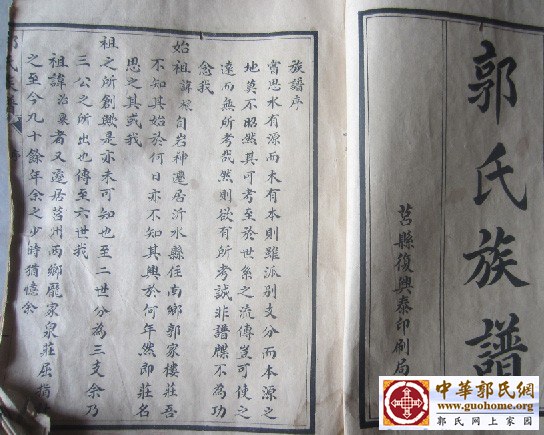 郭氏族譜
莒縣復興泰印刷局
族譜序
嘗思水有源而木有本則雖派別支分而本源之
地莫不昭然其可考至於世系之流傳豈可使之
遠而無所考哉然則欲有所考誠非譜牒不為功
念我
始祖諱 自岩神遷居沂水縣任南鄉郭家樓莊吾
不知其始於何日亦不知其興於何年然即莊名
思之其或我
祖之所創歟是亦未可知也至二世分為三支余乃
三公之所出也傳至六世我
祖諱治 者又遷居莒州西鄉龐家泉莊屈指
之至今九十餘年余之少時猶憶余
中華郭氏網
www.guohome.org
郭氏网上家园